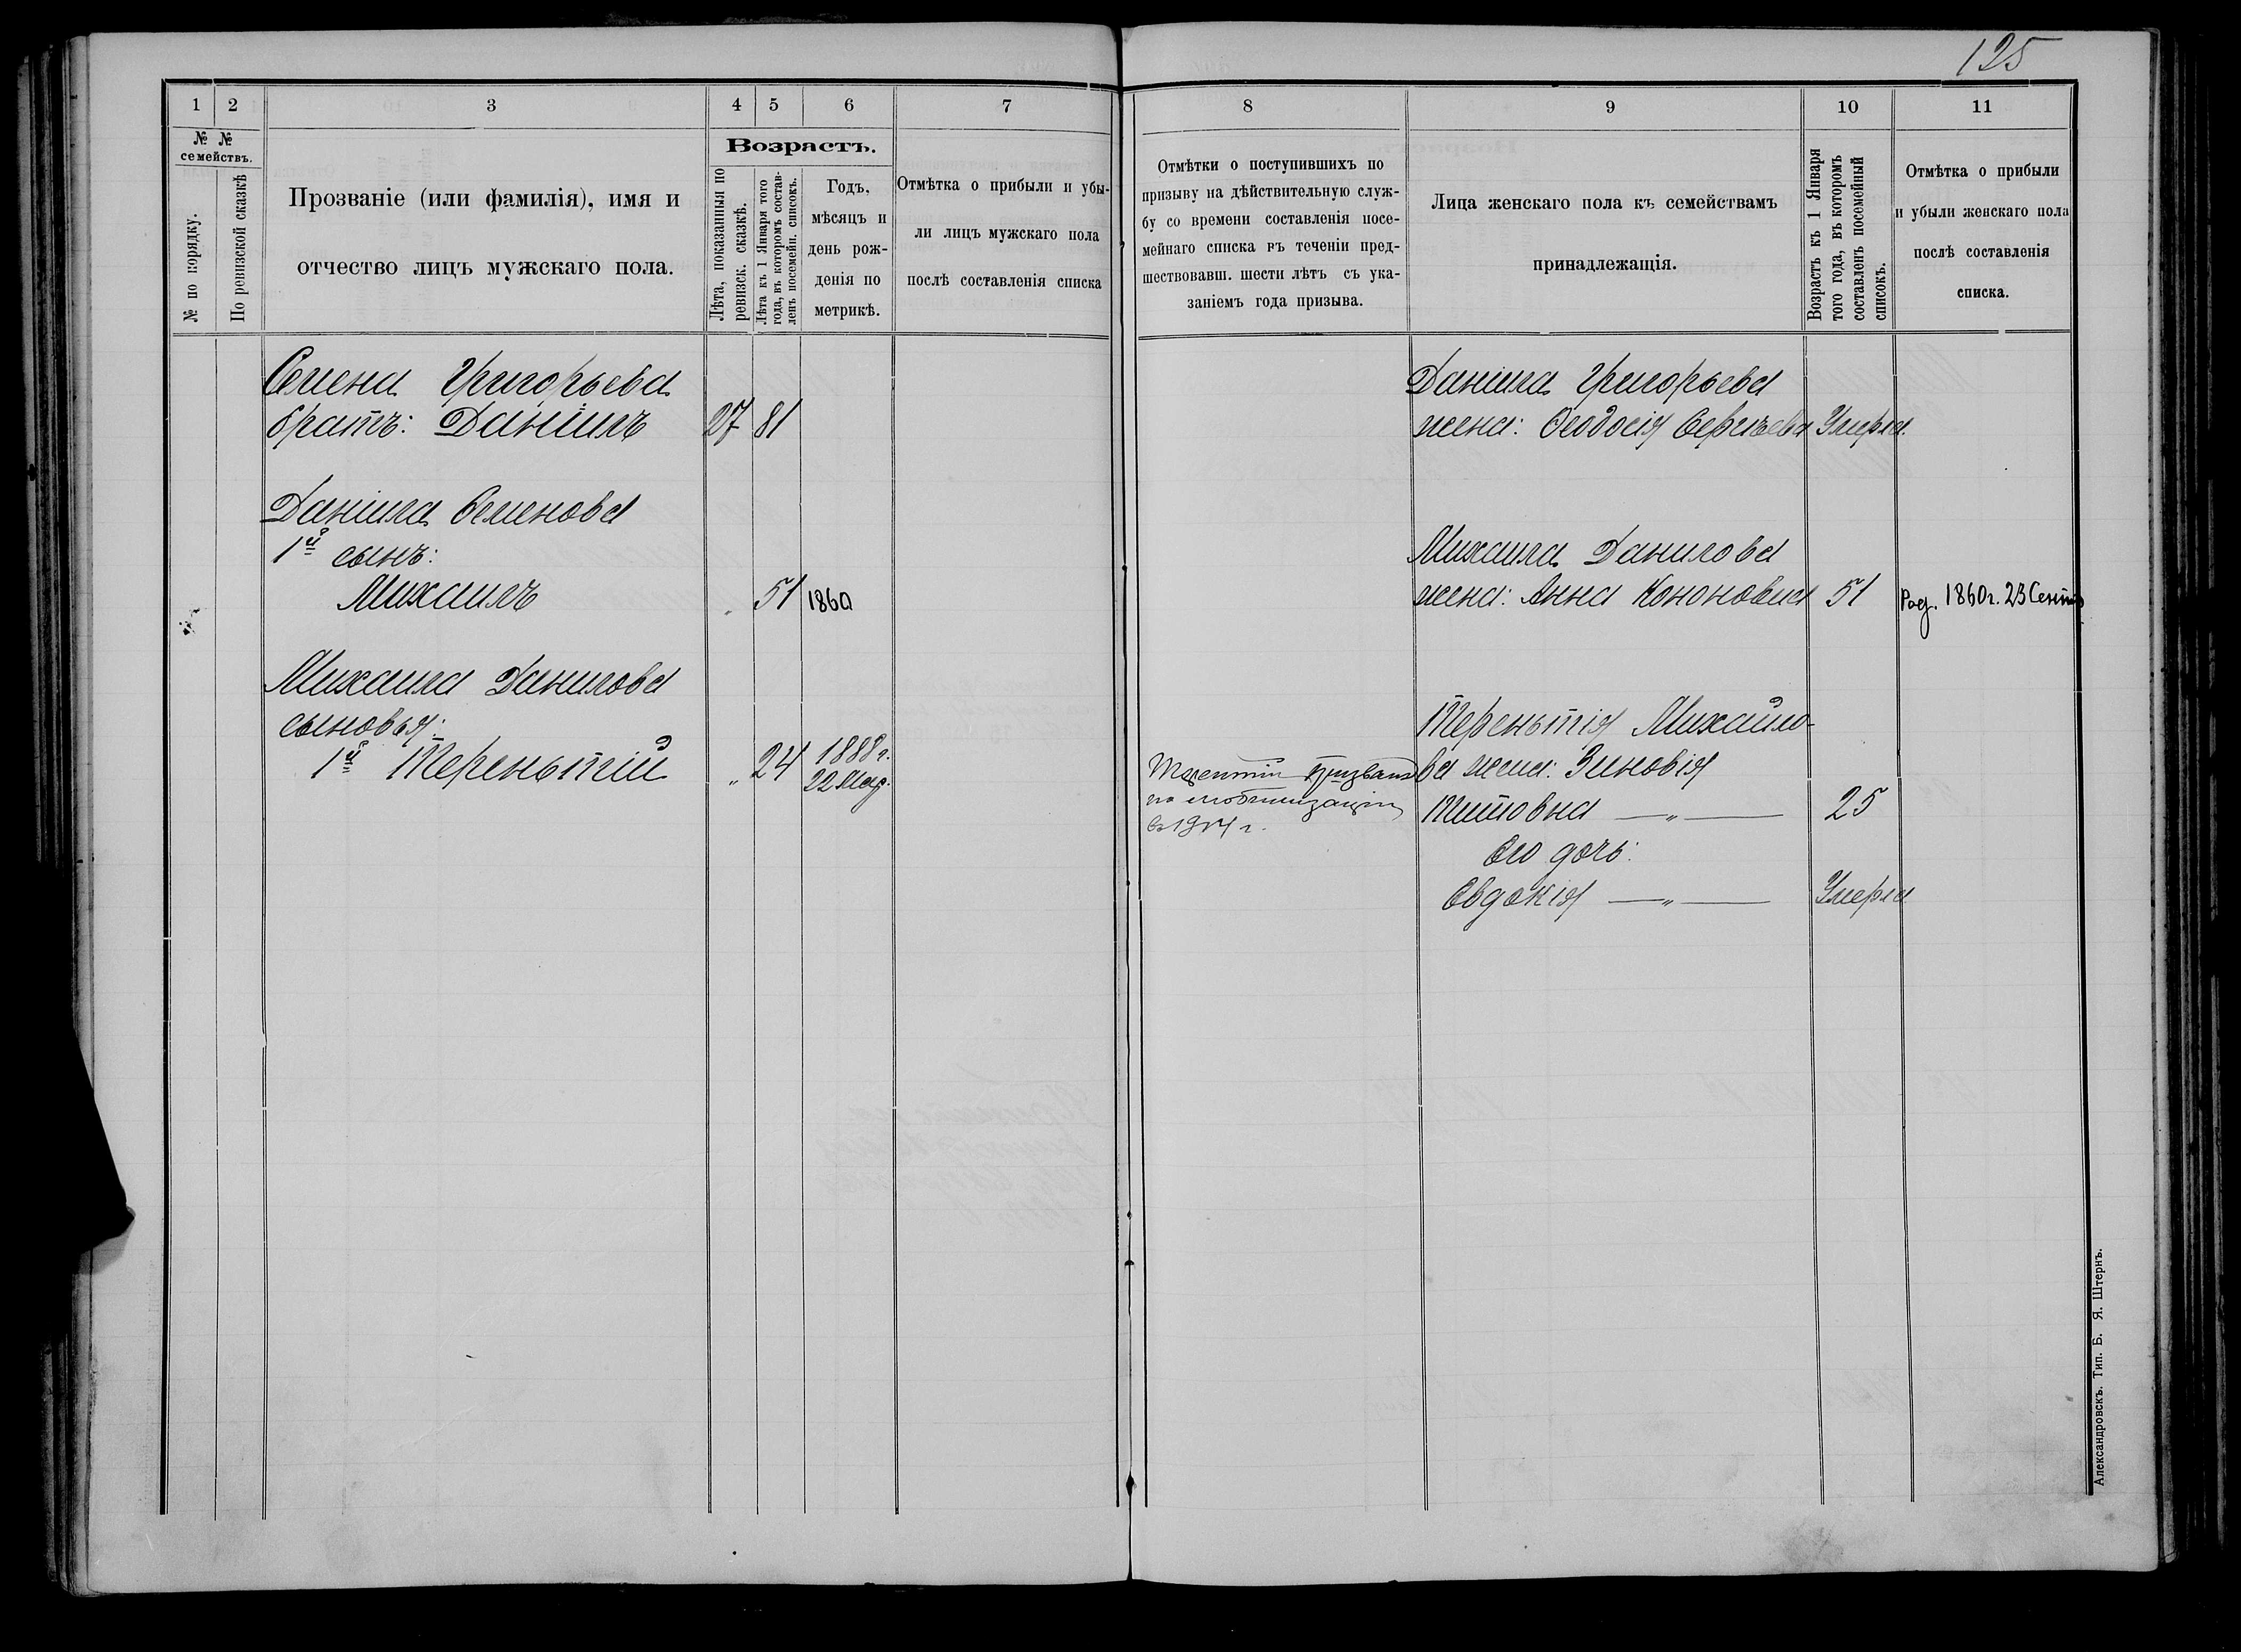 125
1
2
3
4
5
6
7
№ №
семействъ.
№ по порядку.
По ревизской сказкѣ
Прозваніе (или фамилія), имя и
отчество лицъ мужскаго пола.
Возрастъ.
Лѣта, показанныя по
ревизск. сказкѣ.
Лѣта къ 1 Января того
года, въ которомъ состав-
ленъ посемейн. списокъ.
Годъ,
мѣсяцъ и
день рож-
денія по
метрикѣ.
Отмѣтка о прибыли и убы-
ли лицъ мужскаго пола
послѣ составленія списка
Семена Григорьева
братъ: Даніилъ 27 81
Даніила Семенова
1й сынъ:
Михаилъ 51 1860
Михаила Данилова
сыновья:
1й Терентій „ 24 1888 г.
22 Мар.
8
9
10
11
Отмѣтки о поступившихъ по
призыву на дѣйствительную служ-
бу со времени составленія посе-
мейнаго списка въ теченіи пред-
шествовавш. шести лѣтъ съ ука-
заніемъ года призыва.
Лица женскаго пола къ семействамъ
принадлежащія.
Возрастъ къ 1 Января
того года, въ которомъ
составленъ посемейный
списокъ.
Отмѣтка о прибыли
и убыли женскаго пола
послѣ составленія
списка.
Даніила Григорьева
жена: Феодосія Сергѣева Умерла.
Михаила Данилова
жена: Анна Кононовна 51 Род. 1860 г. 23 Сент.
Терентій призванъ
по мобилизаціи
въ 1914 г.
Терентія Михайло-
ва жена: Зиновія
Титовна —„— 25
Его дочь:
Евдокія —„— Умерла
Александровскъ. Тип. Б. Я. Штернъ.